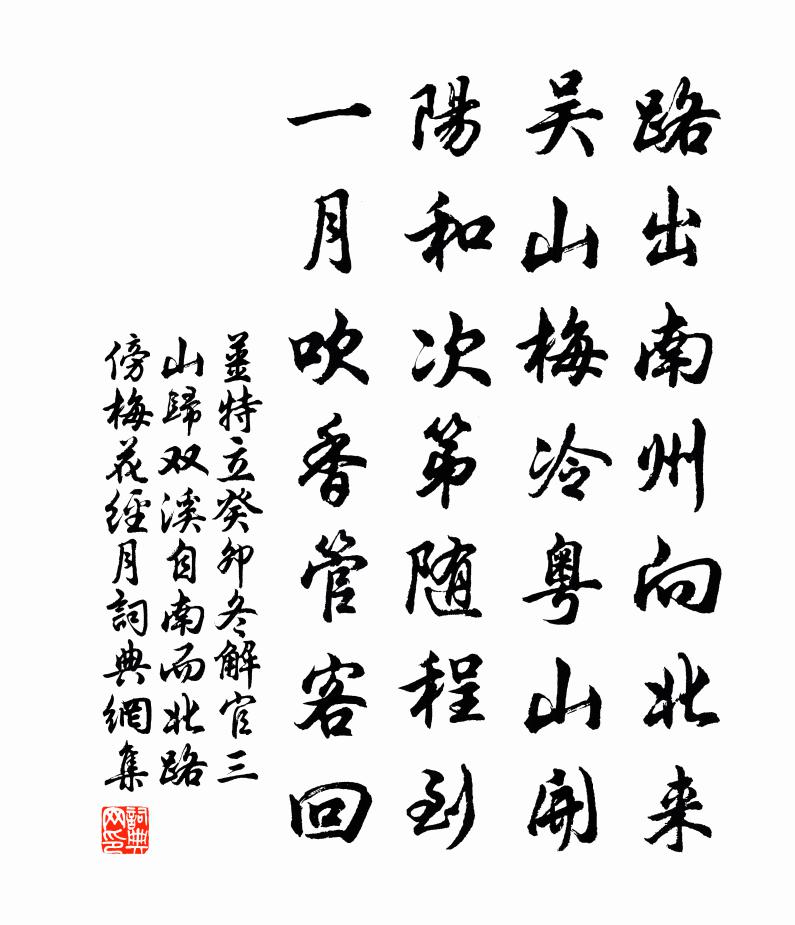 路出南州向北来
吴山梅冷粤山開
陽和次第随程到
一月吹香管客回
薑特立癸卯冬解官三
山歸双溪自南而北路
傍梅花經月詞典網集
詞典
网印